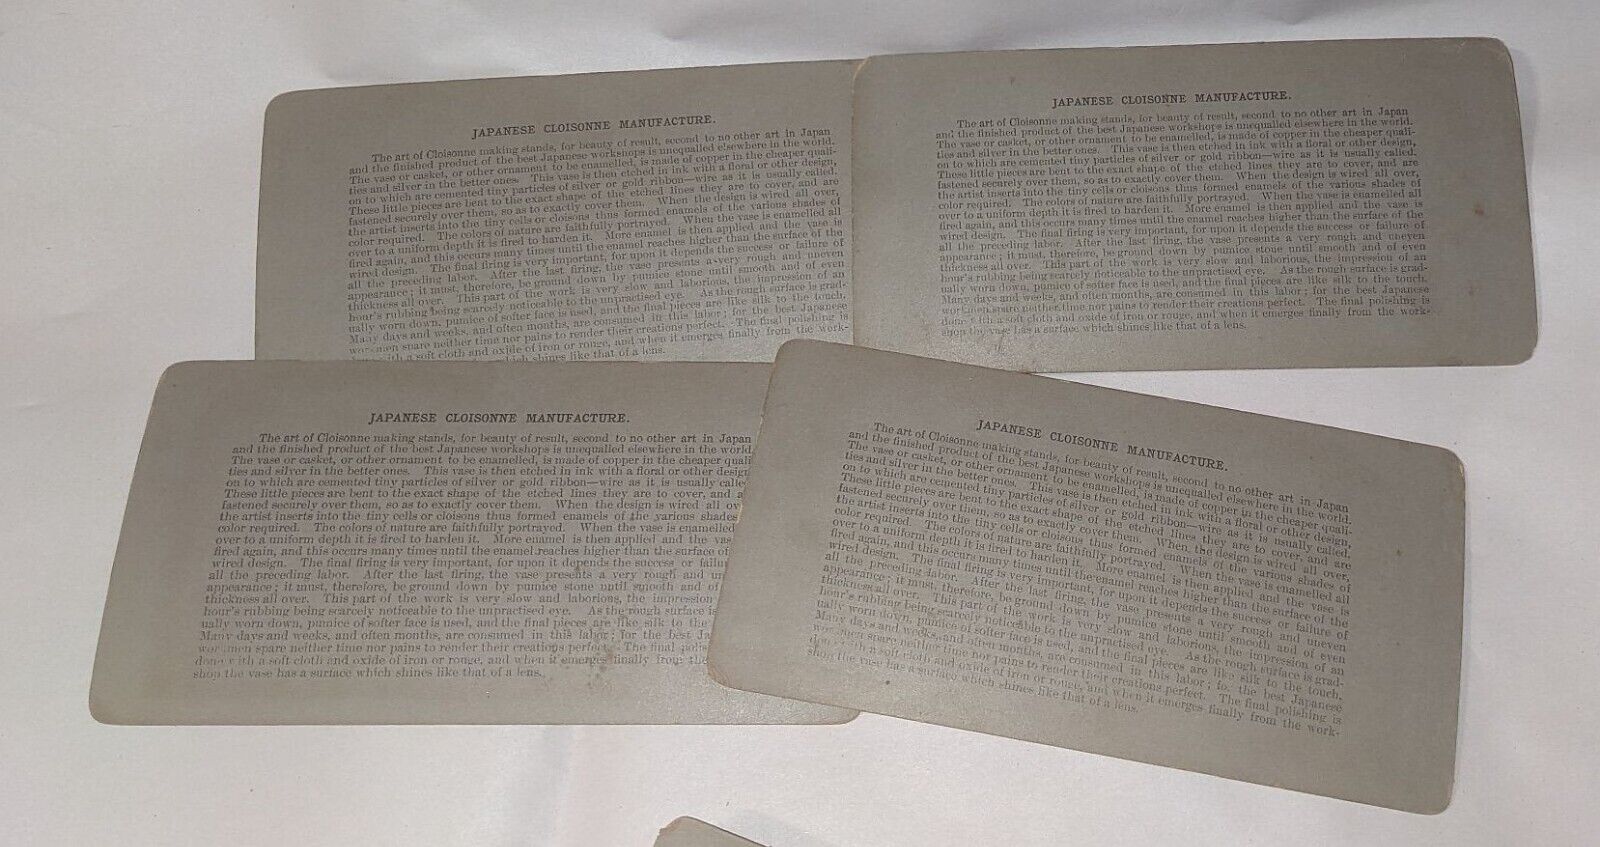 JAPANESE CLOISONNE MANUFACTURE.
The art of Cloisonne making stands, for beauty of result, second to no other art in Japan
and the finished product of the best Japanese workshops is unequalled elsewhere in the world.
The vase or casket, or other ornament to be enamelled, is made of copper in the cheaper quali-
ties and silver in the better ones. This vase is then etched in ink with a floral or other design,
on to which are cemented tiny particles of silver or gold ribbon—wire as it is usually called.
These little pieces are bent to the exact shape of the etched lines they are to cover, and are
fastened securely over them, so as to exactly cover them. When the design is wired all over,
the artist inserts into the tiny cells or cloisons thus formed enamels of the various shades of
color required. The colors of nature are faithfully portrayed. When the vase is enamelled all
over to a uniform depth it is fired to harden it. More enamel is then applied and the vase is
fired again, and this occurs many times until the enamel reaches higher than the surface of the
wired design. The final firing is very important, for upon it depends the success or failure of
all the preceding labor. After the last firing, the vase presents a very rough and uneven
appearance; it must, therefore, be ground down by pumice stone until smooth and of even
thickness all over. This part of the work is very slow and laborious, the impression of an
hour's rubbing being scarcely noticeable to the unpractised eye. As the rough surface is grad-
ually worn down, pumice of softer face is used, and the final pieces are like silk to the touch.
Many days and weeks, and often months, are consumed in this labor; for the best Japanese
workmen spare neither time nor pains to render their creations perfect. The final polishing is
done with a soft cloth and oxide of iron or rouge, and when it emerges finally from the work-
which shines like that of a lens.
JAPANESE CLOISONNE MANUFACTURE.
The art of Cloisonne making stands, for beauty of result, second to no other art in Japan
and the finished product of the best Japanese workshops is unequalled elsewhere in the world.
The vase or casket, or other ornament to be enamelled, is made of copper in the cheaper quali-
ties and silver in the better ones. This vase is then etched in ink with a floral or other design,
on to which are cemented tiny particles of silver or gold ribbon—wire as it is usually called.
These little pieces are bent to the exact shape of the etched lines they are to cover, and are
fastened securely over them, so as to exactly cover them. When the design is wired all over,
the artist inserts into the tiny cells or cloisons thus formed enamels of the various shades of
color required. The colors of nature are faithfully portrayed. When the vase is enamelled all
over to a uniform depth it is fired to harden it. More enamel is then applied and the vase is
fired again, and this occurs many times until the enamel reaches higher than the surface of the
wired design. The final firing is very important, for upon it depends the success or failure of
all the preceding labor. After the last firing, the vase presents a very rough and uneven
appearance; it must, therefore, be ground down by pumice stone until smooth and of even
thickness all over. This part of the work is very slow and laborious, the impression of an
hour's rubbing being scarcely noticeable to the unpractised eye. As the rough surface is grad-
ually worn down, pumice of softer face is used, and the final pieces are like silk to the touch.
Many days and weeks, and often months, are consumed in this labor; for the best Japanese
workmen spare neither time nor pains to render their creations perfect. The final polishing is
done with a soft cloth and oxide of iron or rouge, and when it emerges finally from the work-
shop the vase has a surface which shines like that of a lens.
JAPANESE CLOISONNE MANUFACTURE.
The art of Cloisonne making stands, for beauty of result, second to no other art in Japan
and the finished product of the best Japanese workshops is unequalled elsewhere in the world
The vase or casket, or other ornament to be enamelled, is made of copper in the cheaper quali
ties and silver in the better ones. This vase is then etched in ink with a floral or other design
on to which are cemented tiny particles of silver or gold ribbon—wire as it is usually calle
These little pieces are bent to the exact shape of the etched lines they are to cover, and a
fastened securely over them, so as to exactly cover them. When the design is wired all ov
the artist inserts into the tiny cells or cloisons thus formed enamels of the various shades
color required. The colors of nature are faithfully portrayed. When the vase is enamelled
over to a uniform depth it is fired to harden it. More enamel is then applied and the vas
fired again, and this occurs many times until the enamel reaches higher than the surface of
wired design. The final firing is very important, for upon it depends the success or failur
all the preceding labor. After the last firing, the vase presents a very rough and un
appearance; it must, therefore, be ground down by pumice stone until smooth and of
thickness all over. This part of the work is very slow and laborious, the impression
hour's rubbing being scarcely noticeable to the unpractised eye. As the rough surface is
ually worn down, pumice of softer face is used, and the final pieces are like silk to the
Many days and weeks, and often months, are consumed in this labor; for the best Ja
workmen spare neither time nor pains to render their creations perfect. The final polis
done with a soft cloth and oxide of iron or rouge, and when it emerges finally from the
shop the vase has a surface which shines like that of a lens.
JAPANESE CLOISONNE MANUFACTURE.
The art of Cloisonne making stands, for beauty of result, second to no other art in Japan
and the finished product of the best Japanese workshops is unequalled elsewhere in the world.
The vase or casket, or other ornament to be enamelled, is made of copper in the cheaper quali-
ties and silver in the better ones. This vase is then etched in ink with a floral or other design,
on to which are cemented tiny particles of silver or gold ribbon—wire as it is usually called.
These little pieces are bent to the exact shape of the etched lines they are to cover, and are
fastened securely over them, so as to exactly cover them. When the design is wired all over,
the artist inserts into the tiny cells or cloisons thus formed enamels of the various shades of
color required. The colors of nature are faithfully portrayed. When the vase is enamelled all
over to a uniform depth it is fired to harden it. More enamel is then applied and the vase is
fired again, and this occurs many times until the enamel reaches higher than the surface of the
wired design. The final firing is very important, for upon it depends the success or failure of
all the preceding labor. After the last firing, the vase presents a very rough and uneven
appearance; it must, therefore, be ground down by pumice stone until smooth and of even
thickness all over. This part of the work is very slow and laborious, the impression of an
hour's rubbing being scarcely noticeable to the unpractised eye. As the rough surface is grad-
ually worn down, pumice of softer face is used, and the final pieces are like silk to the touch.
Many days and weeks, and often months, are consumed in this labor; for the best Japanese
workmen spare neither time nor pains to render their creations perfect. The final polishing is
done with a soft cloth and oxide of iron or rouge, and when it emerges finally from the work-
shop the vase has a surface which shines like that of a lens.